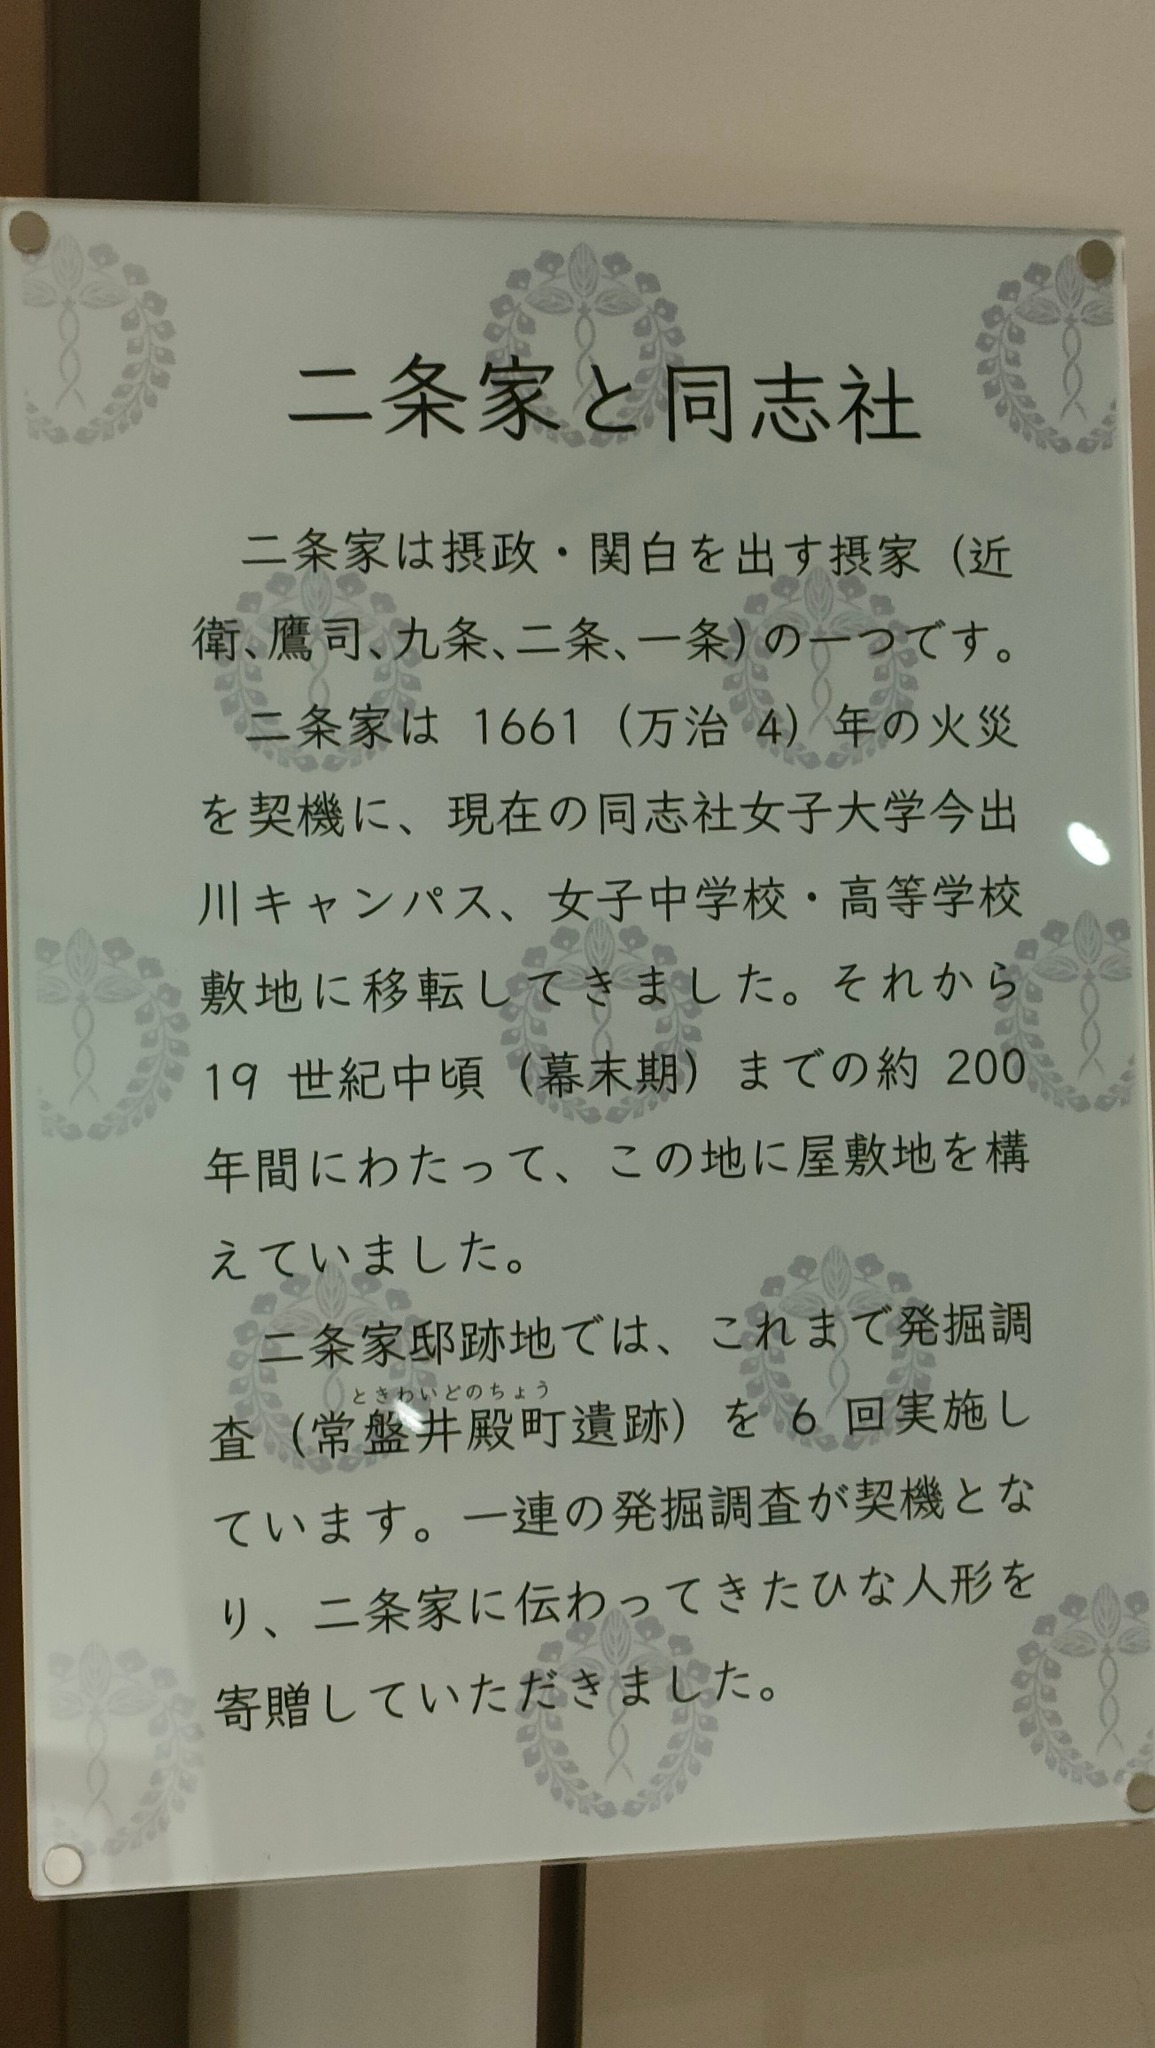 二条家と同志社
二条家は摂政・関白を出す摂家（近
衛、鷹司、九条、二条、一条）の一つです。
二条家は 1661（万治 4）年の火災
を契機に、現在の同志社女子大学今出
川キャンパス、女子中学校・高等学校
敷地に移転してきました。それから
19 世紀中頃（幕末期）までの約 200
年間にわたって、この地に屋敷地を構
えていました。
二条家邸跡地では、これまで発掘調
ときわいどのちょう
査（常盤井殿町遺跡）を 6 回実施し
ています。一連の発掘調査が契機とな
り、二条家に伝わってきたひな人形を
寄贈していただきました。